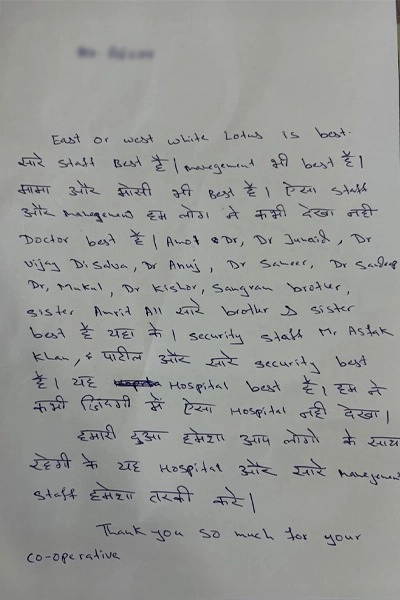 East or west white Lotus is best.
सारे Staff Best है| management भी best है|
मामा और मोसी भी Best है| ऐसा Staff
और management हम लोग ने कभी देखा नही
Doctor best है| Dr, Dr Junaid, Dr
Vijay DiSalva, Dr Anuj, Dr Sameer, Dr Sandeep
Dr, Mukul, Dr Kishor, Sangram brother,
sister Amrit All सारे brothr & sister
best है यहा के| security staff Mr Asfak
Khan, & पाटील और सारे security best
है| यह Hospital best है| हम ने
कभी जिंदगी में ऐसा Hospital नही देखा|
हमारी दुआ हमेशा आप लोगो के साथ
रहेगी के यह Hospital और सारे management
Staff हमेशा तरकी करे|
Thank you so much for your
co-operative